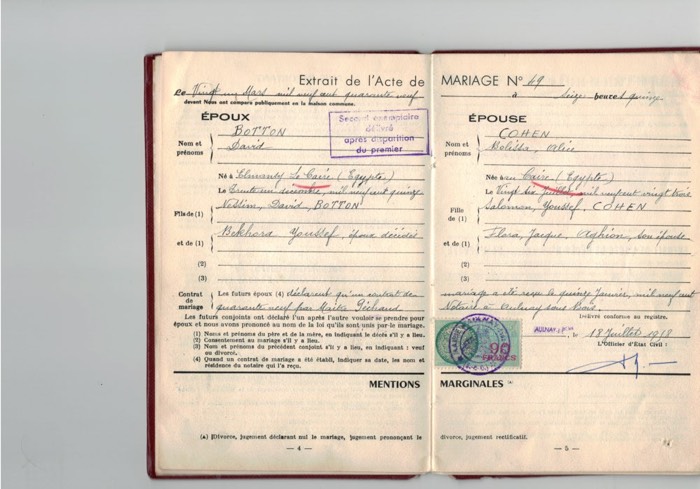 Extrait de l'Acte de
Le Vingt un Mars mil neuf cent quarante neuf
devant Nous ont comparu publiquement en la maison commune.
ÉPOUX
Second exemplaire
délivré
après disparition
du premier
Nom et
prénoms
BOTTON
David
Né à Elmanly Le Caire (Égypte)
Le Trente un décembre, mil neuf cent quinze
Fils de (1)
Nessim, David, BOTTON
et de (1)
Bekhora Youssef, époux décédés
(2)
(3)
Contrat
de
mariage
Les futurs époux (4) déclarent qu'un contrat de
quarante neuf par Maître
Les futurs conjoints ont déclaré l'un après l'autre vouloir se prendre pour
époux et nous avons prononcé au nom de la loi qu'ils sont unis par le mariage.
(1) Noms et prénoms du père et de la mère, en indiquant le décès s'il y a lieu.
(2) Consentement au mariage s'il y a lieu.
(3) Nom et prénoms du précédent conjoint s'il y a lieu, en indiquant : veuf
ou divorcé.
(4) Quand un contrat de mariage a été établi, indiquer sa date, les nom et
résidence du notaire qui l'a reçu.
MENTIONS
(A) Divorce, jugement déclarant nul le mariage, jugement prononçant le
— 4 —
MARIAGE N° 49
à seize heures quinze
ÉPOUSE
Nom et
prénoms
COHEN
Alice
Née à Caire (Égypte)
Le Vingt six Juillet mil neuf cent vingt trois
Fille
de (1)
Salomon, Youssef, COHEN
et de (1)
Flora, Jacque, Aghion, son épouse
(2)
(3)
mariage a été reçu le quinze Janvier, mil neuf cent
Notaire à Aulnay sous Bois,
Délivré conforme au registre.
le 18 Juillet
L'Officier d'État Civil :
90
FRANCS
MARGINALES (A)
divorce, jugement rectificatif.
— 5 —